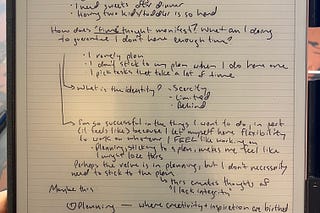 • I need sweets after dinner
• Having two kids/toddler is so hard
How does "time" thought manifest? What am I doing
to guarantee I don't have enough time?
• I rarely plan
• I don't stick to my plan when I do have one
• I pick tasks that take a lot of time
→ What is the identity?
• Scarcity
• Limited
• Behind
→ I'm so successful in the things I want to do, in part
(it feels like) because I let myself have flexibility
to work on whatever I FEEL like working on
Planning/sticking to a plan makes me feel like
I might lose this
Perhaps the value is in planning, but I don't necessarily
need to stick to the plan
↳ this creates thoughts of
"I lack integrity"
Maybe this
Planning — where creativity + inspiration are birthed